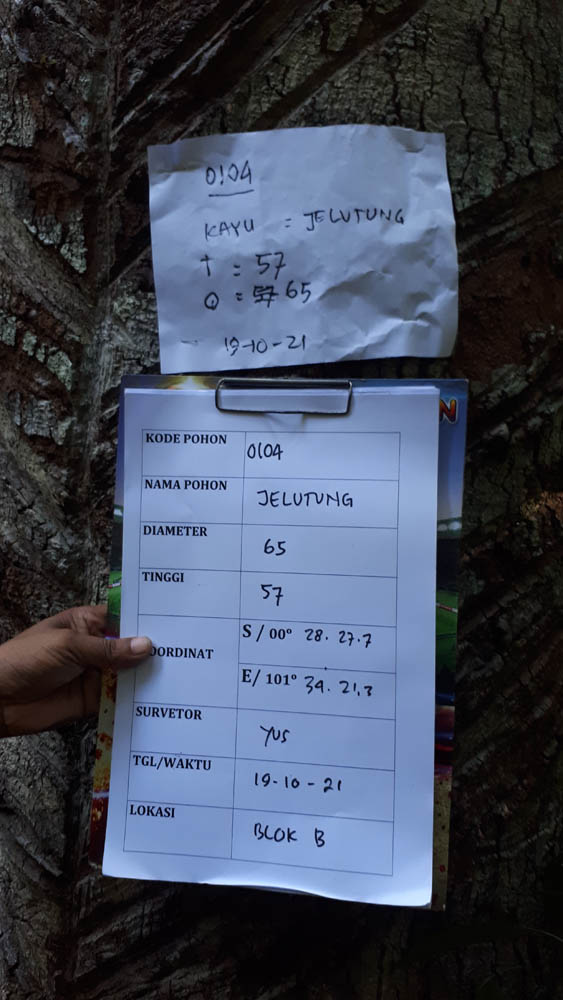 0104
KAYU = JELUTUNG
T = 57
Q = 57 65
19-10-21
N
KODE POHON 0104
NAMA POHON JELUTUNG
DIAMETER 65
TINGGI 57
OORDINAT S / 00° 28. 27.7
E/ 101° 34. 21,3
SURVETOR YUS
TGL/WAKTU 19-10-21
LOKASI BLOK B